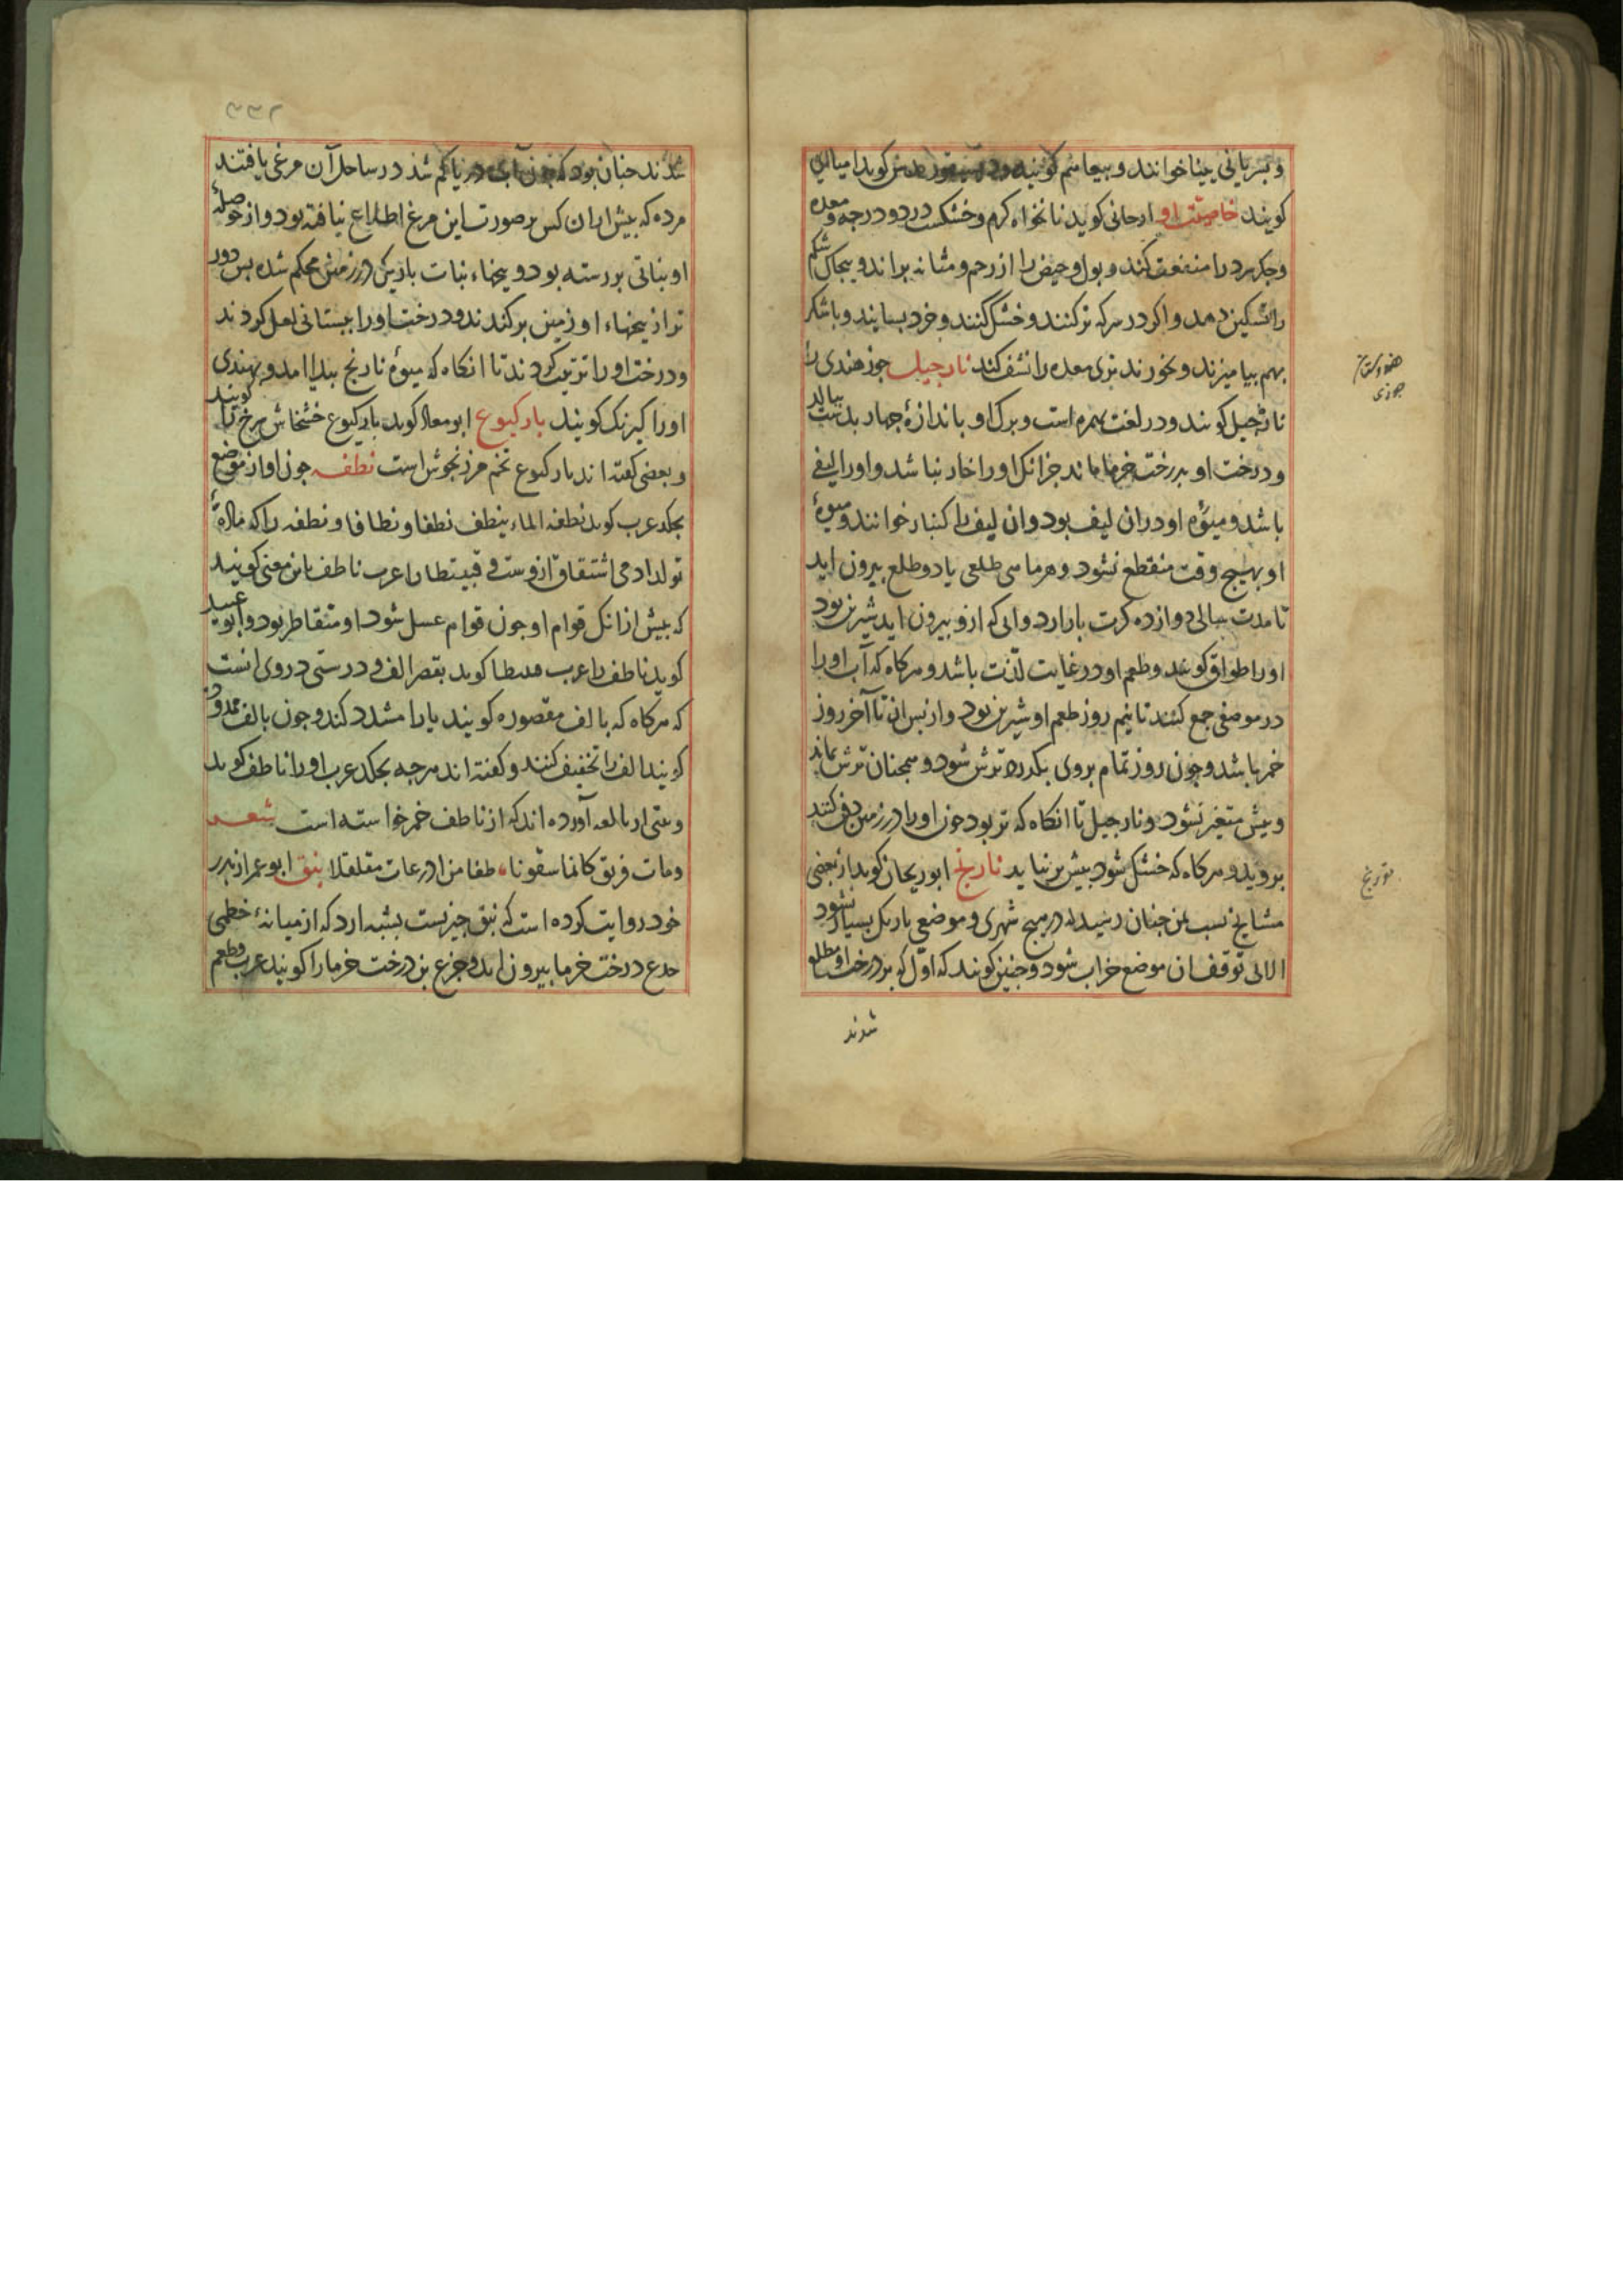 و بسریانی نینا خوانند و
کویند خاصیت او ارجانی کوید نانخواه کرم و خشکست در دو درجه و معده
و جکر سرد را منفعت کند و بول و حیض را از رحم و مثانه براند و بیجاک شکم
را تسکین دهد و اکر در سرکه تر کنند و خشک کنند و خرد بسایند و با شکر
بهم بیامیزند و بخورند تری معده را نشف کند نارجیل جوز هندی را
نارجیل کویند و در لغت است و برک او باندازهٔ جهار بدست ببالد
و درخت او بدرخت خرما ماند جز انک او را خار نباشد و او را لیفی
باشد و میوهٔ او در ان لیف بود و ان لیف را کنبار خوانند و میوهٔ
او بهیچ وقت منقطع نشود و هر ماهی طلعی یا دو طلع بیرون اید
تا مدت سالی دوازده کرت بار ارد و ابی که ازو بیرون اید شیرین بود
او را طواق کویند و طعم او در غایت لذت باشد و هرکاه که آب او را
در موضعی جمع کنند تا نیم روز طعم او شیرین بود و از بس ان تا آخر روز
خمر باشد و جون روز تمام بروی بکذرد ترش شود و همجنان ترش بماند
و بیش متغیر نشود و نارجیل تا انکاه که تر بود جون او را در زمین دفن کنند
بروید و هرکاه که خشک شود بیش بر نیاید نارنج ابوریحان کوید از بعضی
مشایخ نسب بمن جنان رسید که در هیچ شهری و موضعی نارنک بسیار نشود
الا بی توقف ان موضع خراب شود و جنین کویند که اول که بر درخت او مطلع
شدند
هندوستان
جوزی
نورنج
۳۳۲
شدند جنان بود که جون آب دریا کم شد در ساحل آن مرغی یافتند
مرده که بیش از ان کس بر صورت این مرغ اطلاع نیافته بود و از حوصلهٔ
او نباتی بر رسته بود و بیخهاء نبات باریک در زمین محکم شده بس دور
تر از بیخهاء او زمین بر کندند و درخت او را ببستانی نقل کردند
و درخت او را تربیت کردند تا انکاه که میوهٔ نارنج بیدا امد و بهندی
او را کویند نارکیوع ابو معاذ کوید نارکیوع خشخاش سرخ را کویند
و بعضی کفته اند نارکیوع تخم مرزنجوش است نطفه جون او از موضع
بجکد عرب کوید نطفه الماء ینطف نطفا و نطافا و نطفه را که مادهٔ
تولد ادمی اشتقاق ازوست و قبیطا را عرب ناطف باین معنی کویند
که بیش از انک قوام او جون قوام عسل شود او متقاطر بود و ابو عبید
کوید ناطف را عرب کوید بقصر الف و درستی در وی انست
که هرکاه که با الف مقصوره کویند یا را مشدد کند و جون با الف ممدوده
کویند الف را تخفیف کنند و کفته اند هرجه بجکد عرب او را ناطف کوید
و بیتی از آورده اند که از ناطف خمر خواسته است شعر
و مات فریق کانما سقونا ناطفا من اذرعات مقلقلا نبق ابو عمر از بدر
خود روایت کرده است که نبق جیزیست بشبه ارد که از میانهٔ
جذع درخت خرما بیرون اید و جذع بن درخت خرما را کویند عرب و طعم